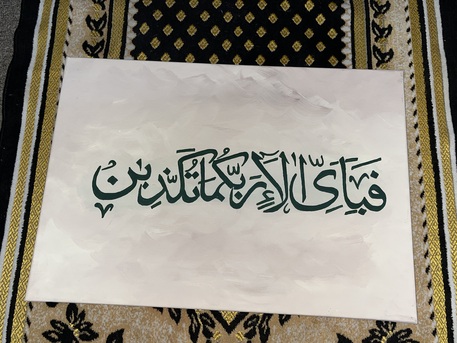 فَبِأَيِّ الَآءِ رَبِّكُمَا تُكَذِّبٰنِ